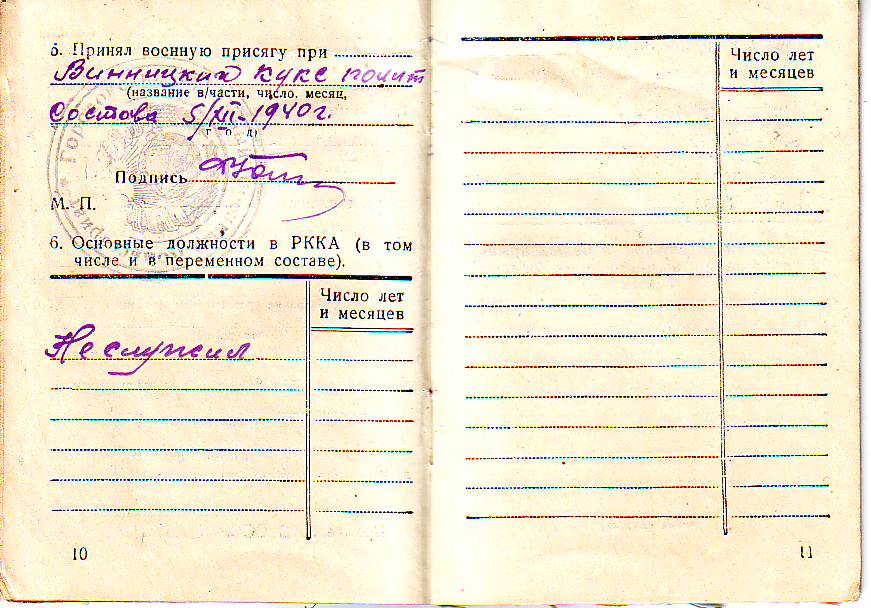 5. Принял военную присягу при
Винницких КУКС полит
(название в/части, число, месяц,
Состава 5/XII-1940г.
г о д)
Подпись
М. П.
6. Основные должности в РККА (в том
числе и в переменном составе).
Число лет
и месяцев
Не служил
10
Число лет
и месяцев
11